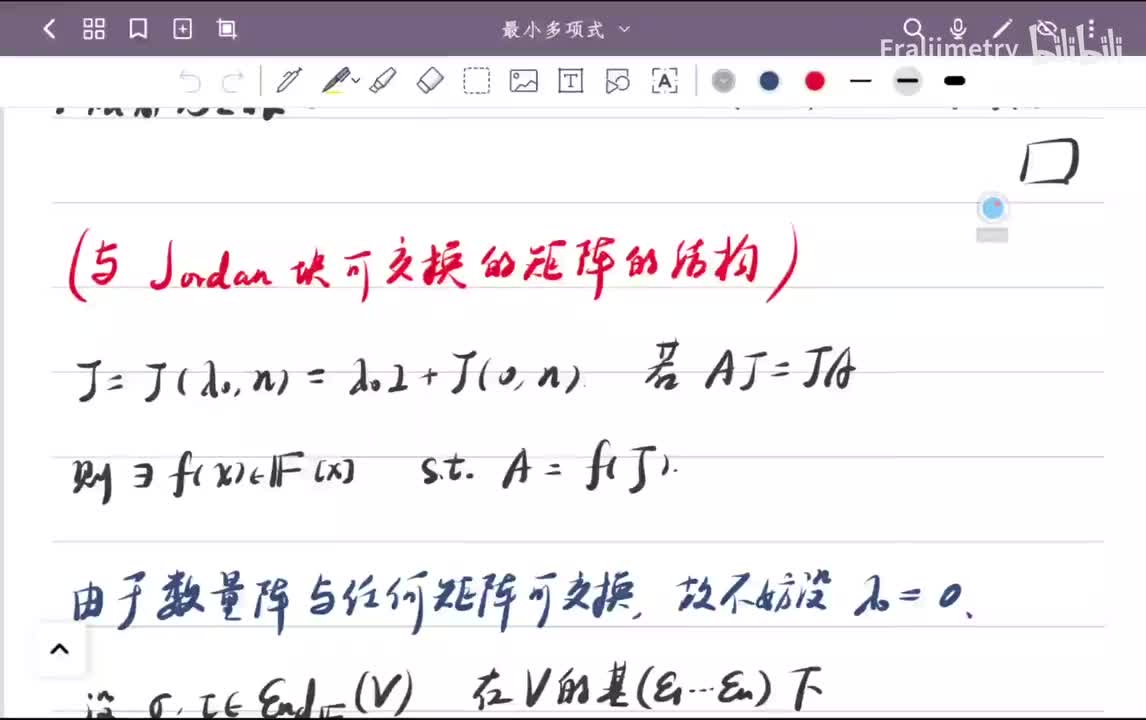 最小多项式
Eraliimetry bilibili
(与 Jordan 块可交换的矩阵的结构)
J = J(λ₀, n) = λ₀I + J(0, n). 若 AJ = JA
则 ∃ f(x) ∈ 𝔽[x] s.t. A = f(J).
由于数量阵与任何矩阵可交换, 故不妨设 λ₀ = 0.
设 σ, τ ∈ End𝔽(V) 在 V 的基 (ε₁ ⋯ εn) 下